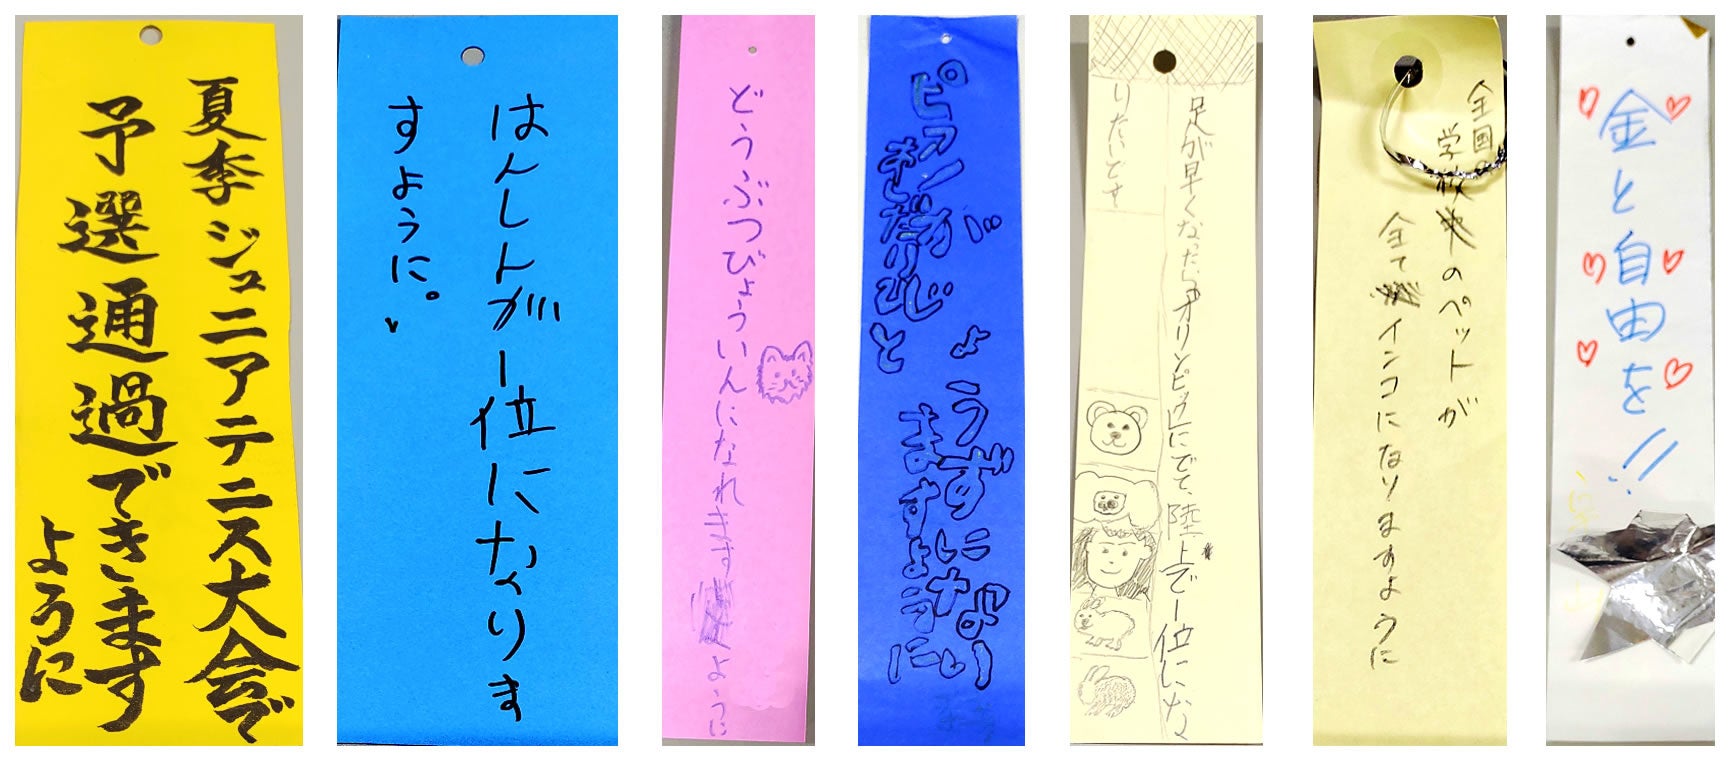 夏季ジュニアテニス大会で
予選通過できます
ように
はんしんが一位になりま
すように。
どうぶつびょういんになれますように
うずになり
ますように
足が早くなったらオリンピックにでて、陸上で一位にな
りたいです
全国の
学校のペットが
全てインコになりますように
金と自由を!!